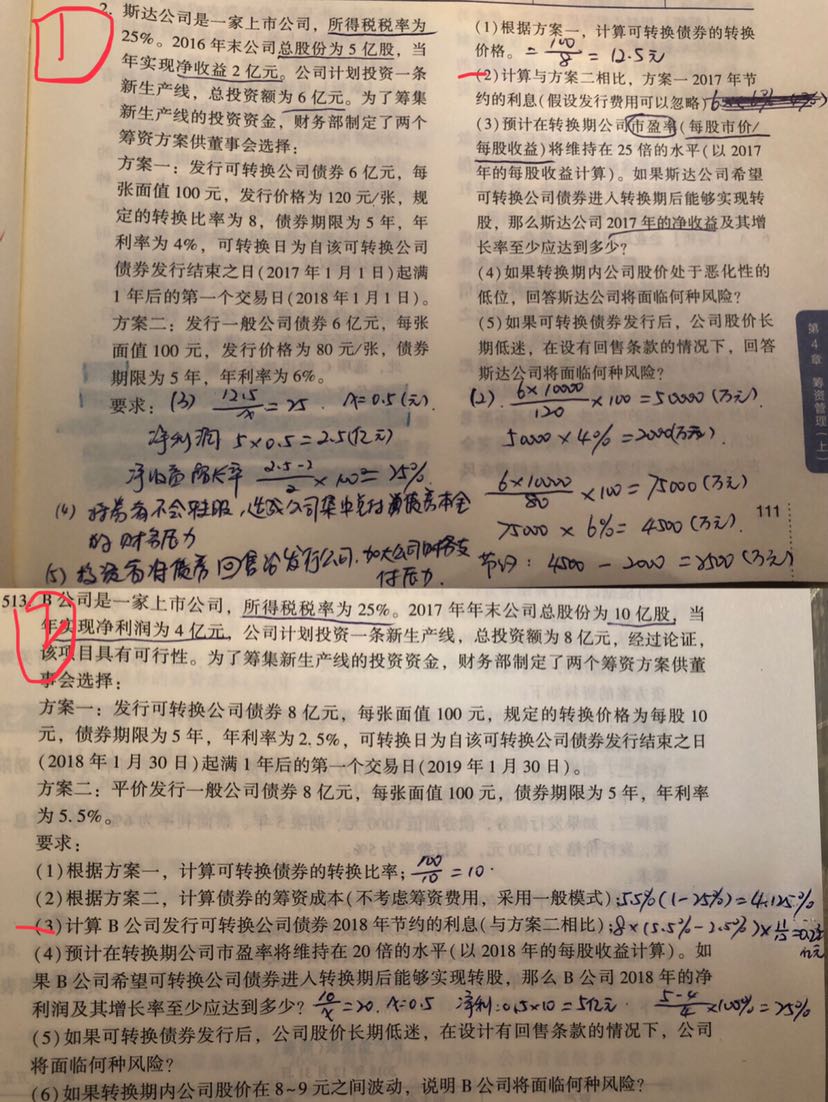 ①
2. 斯达公司是一家上市公司，所得税税率为
25%。2016年末公司总股份为5亿股，当
年实现净收益2亿元。公司计划投资一条
新生产线，总投资额为6亿元。为了筹集
新生产线的投资资金，财务部制定了两个
筹资方案供董事会选择：
方案一：发行可转换公司债券6亿元，每
张面值100元，发行价格为120元/张，规
定的转换比率为8，债券期限为5年，年
利率为4%，可转换日为自该可转换公司
债券发行结束之日(2017年1月1日)起满
1年后的第一个交易日(2018年1月1日)。
方案二：发行一般公司债券6亿元，每张
面值100元，发行价格为80元/张，债券
期限为5年，年利率为6%。
要求：(3) 12.5/x = 25. x=0.5(元).
净利润 5×0.5=2.5(亿元)
净收益增长率 2.5-2/2 ×100%=25%
(4) 持券者不会转股，造成公司集中兑付债券本金
的财务压力
(5) 投资者将债券回售给发行公司，加大公司财务支
付压力.
(1)根据方案一，计算可转换债券的转换
价格。= 100/8 = 12.5元
(2)计算与方案二相比，方案一2017年节
约的利息(假设发行费用可以忽略)
(3)预计在转换期公司市盈率(每股市价/
每股收益)将维持在25倍的水平(以2017
年的每股收益计算)。如果斯达公司希望
可转换公司债券进入转换期后能够实现转
股，那么斯达公司2017年的净收益及其增
长率至少应达到多少?
(4)如果转换期内公司股价处于恶化性的
低位，回答斯达公司将面临何种风险?
(5)如果可转换债券发行后，公司股价长
期低迷，在设有回售条款的情况下，回答
斯达公司将面临何种风险?
(2). 6×10000/120 ×100=50000(万元).
50000×4%=2000(万元).
6×10000/80 ×100=75000(万元)
75000×6%=4500(万元).
节约：4500-2000=2500(万元)
第4章 筹资管理(上)
111
513. B公司是一家上市公司，所得税税率为25%。2017年年末公司总股份为10亿股，当
年实现净利润为4亿元，公司计划投资一条新生产线，总投资额为8亿元，经过论证，
该项目具有可行性。为了筹集新生产线的投资资金，财务部制定了两个筹资方案供董
事会选择：
方案一：发行可转换公司债券8亿元，每张面值100元，规定的转换价格为每股10
元，债券期限为5年，年利率为2.5%，可转换日为自该可转换公司债券发行结束之日
(2018年1月30日)起满1年后的第一个交易日(2019年1月30日)。
方案二：平价发行一般公司债券8亿元，每张面值100元，债券期限为5年，年利率
为5.5%。
要求：
(1)根据方案一，计算可转换债券的转换比率；100/10=10.
(2)根据方案二，计算债券的筹资成本(不考虑筹资费用，采用一般模式)；5.5%(1-25%)=4.125%
(3)计算B公司发行可转换公司债券2018年节约的利息(与方案二相比)；8×(5.5%-2.5%)×11/12=0.22亿元
(4)预计在转换期公司市盈率将维持在20倍的水平(以2018年的每股收益计算)。如
果B公司希望可转换公司债券进入转换期后能够实现转股，那么B公司2018年的净
利润及其增长率至少应达到多少? 10/x=20. x=0.5 净利：0.5×10=5亿元. 5-4/4×100%=25%
(5)如果可转换债券发行后，公司股价长期低迷，在设计有回售条款的情况下，公司
将面临何种风险?
(6)如果转换期内公司股价在8~9元之间波动，说明B公司将面临何种风险?